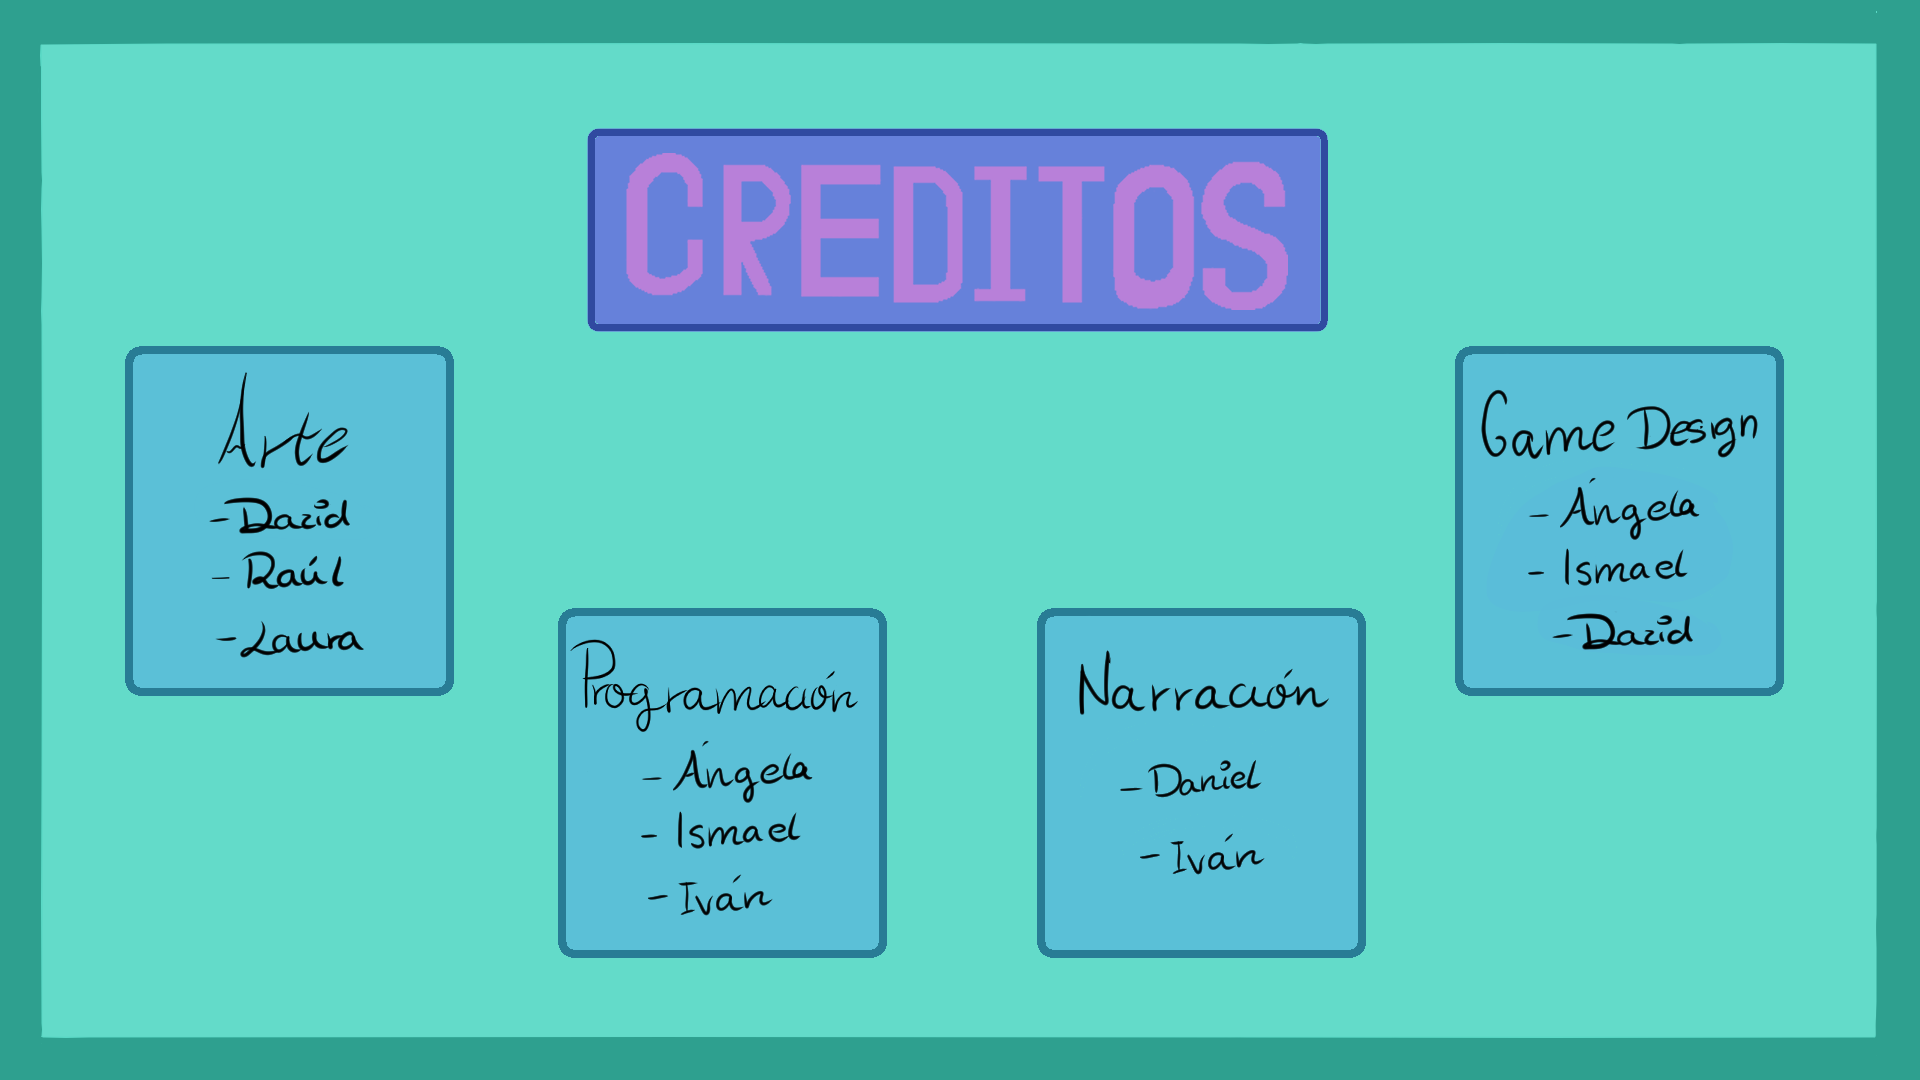 CREDITOS
Arte
- David
- Raúl
- Laura
Programación
- Ángela
- Ismael
- Iván
Narración
- Daniel
- Iván
Game Design
- Ángela
- Ismael
- David